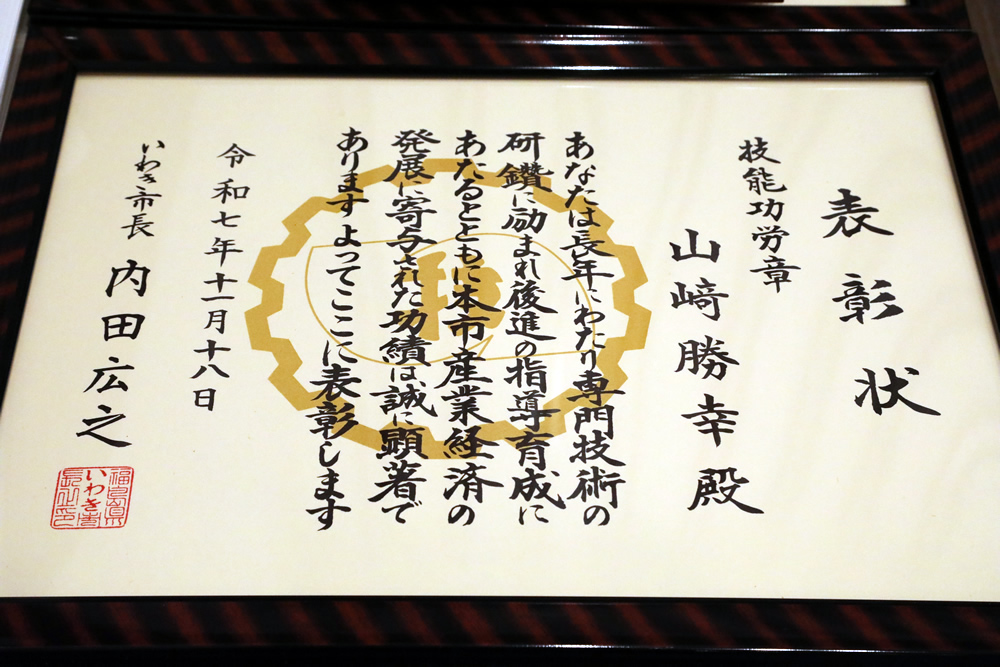 表彰状
技能功労章
山﨑勝幸殿
あなたは長年にわたり専門技術の
研鑽に励まれ後進の指導育成に
あたるとともに本市産業経済の
発展に寄与された功績は誠に顕著で
あります よってここに表彰します
令和七年十一月十八日
いわき市長 内田広之
福島県
いわき市
長之印